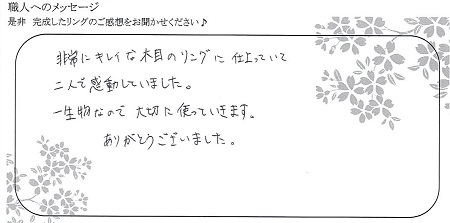 職人へのメッセージ
是非 完成したリングのご感想をお聞かせください♪
非常にキレイな木目のリングに仕上っていて
二人で感動していました。
一生物なので大切に使っていきます。
ありがとうございました。